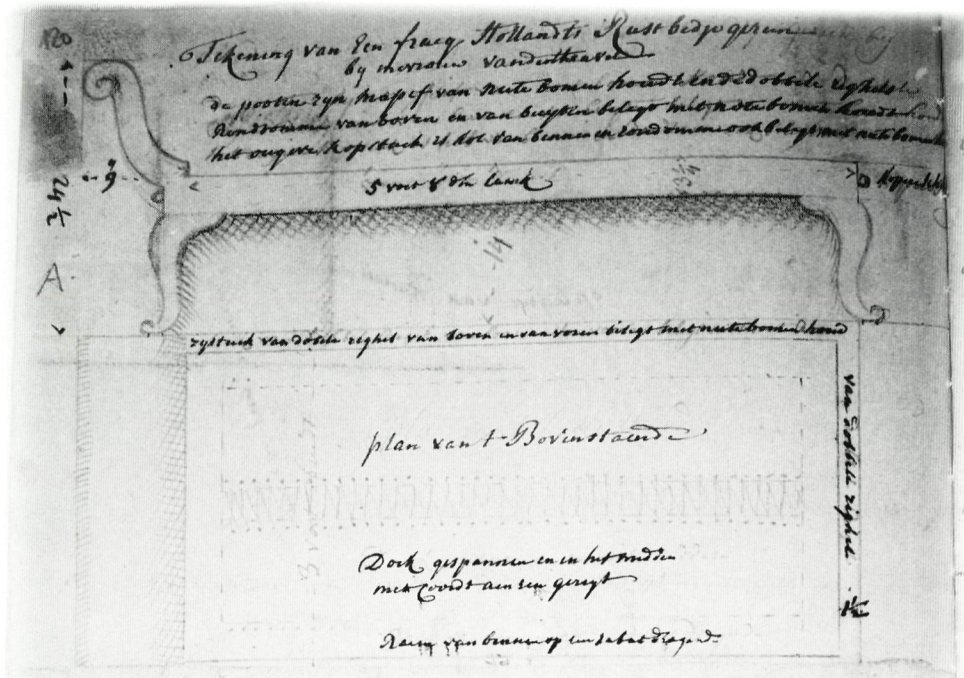 120
Tekening van Een fraeg Hollandts Rust bedje
by mevrouw
de pooten zyn massif van nute bomen houdt en de dobbele righels
Rondtomme van boven en van buyten belegt met note bomen houdt
het ougeve kopstuck is hol van bennen en rondtomme ook belegt met nute bomen
9
5 voet 8 dm lanck
3 1/4
24 1/2
A
14
zystuck van dobbele righel van boven en van voren belegt met nute bomen houdt
van dobbele righel
plan van t Bovenstaende
Dock gespannen en in het midden
met Coordt aen een geregt
Raem van bennen op een
1 1/2